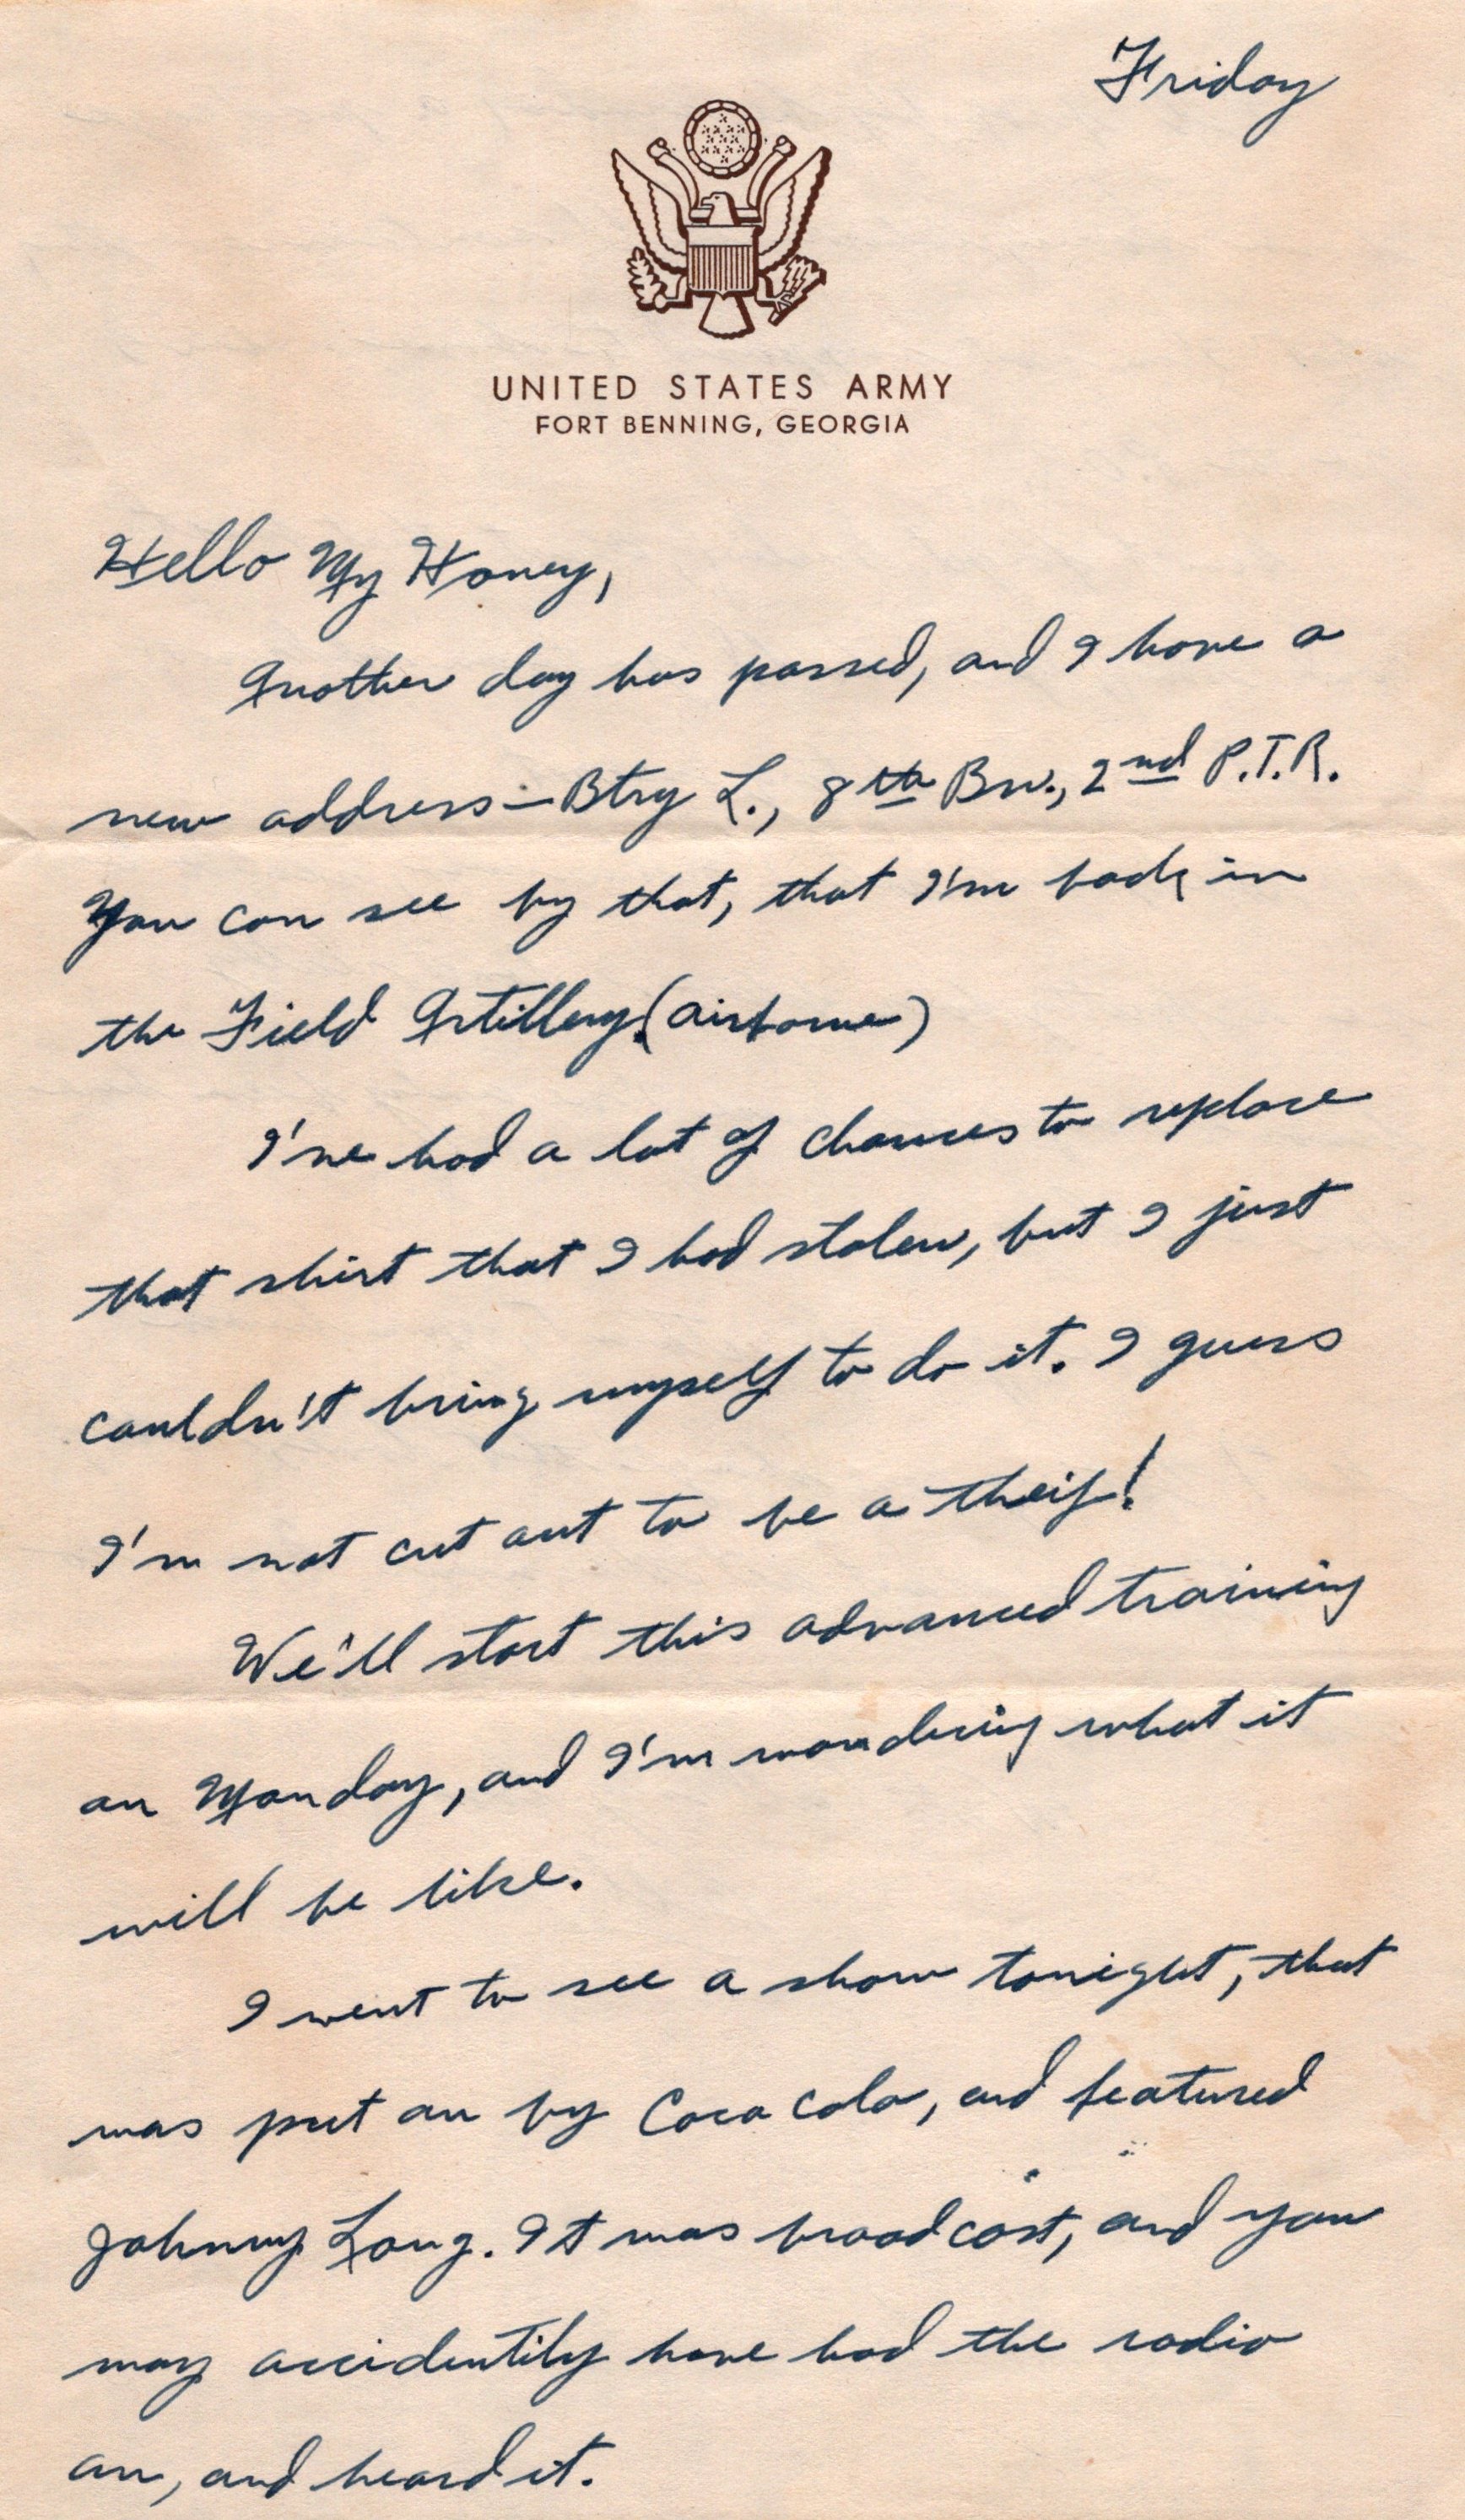 Friday
UNITED STATES ARMY
FORT BENNING, GEORGIA
Hello My Honey,
Another day has passed, and I have a
new address — Btry L., 8th Bn., 2nd P.T.R.
You can see by that, that I'm back in
the Field Artillery. (airborne)
I've had a lot of chances to replace
that shirt that I had stolen, but I just
couldn't bring myself to do it. I guess
I'm not cut out to be a theif!
We'll start this advanced training
on Monday, and I'm wondering what it
will be like.
I went to see a show tonight, that
was put on by Coca Cola, and featured
Johnny Long. It was broadcast, and you
may accidentily have had the radio
on, and heard it.